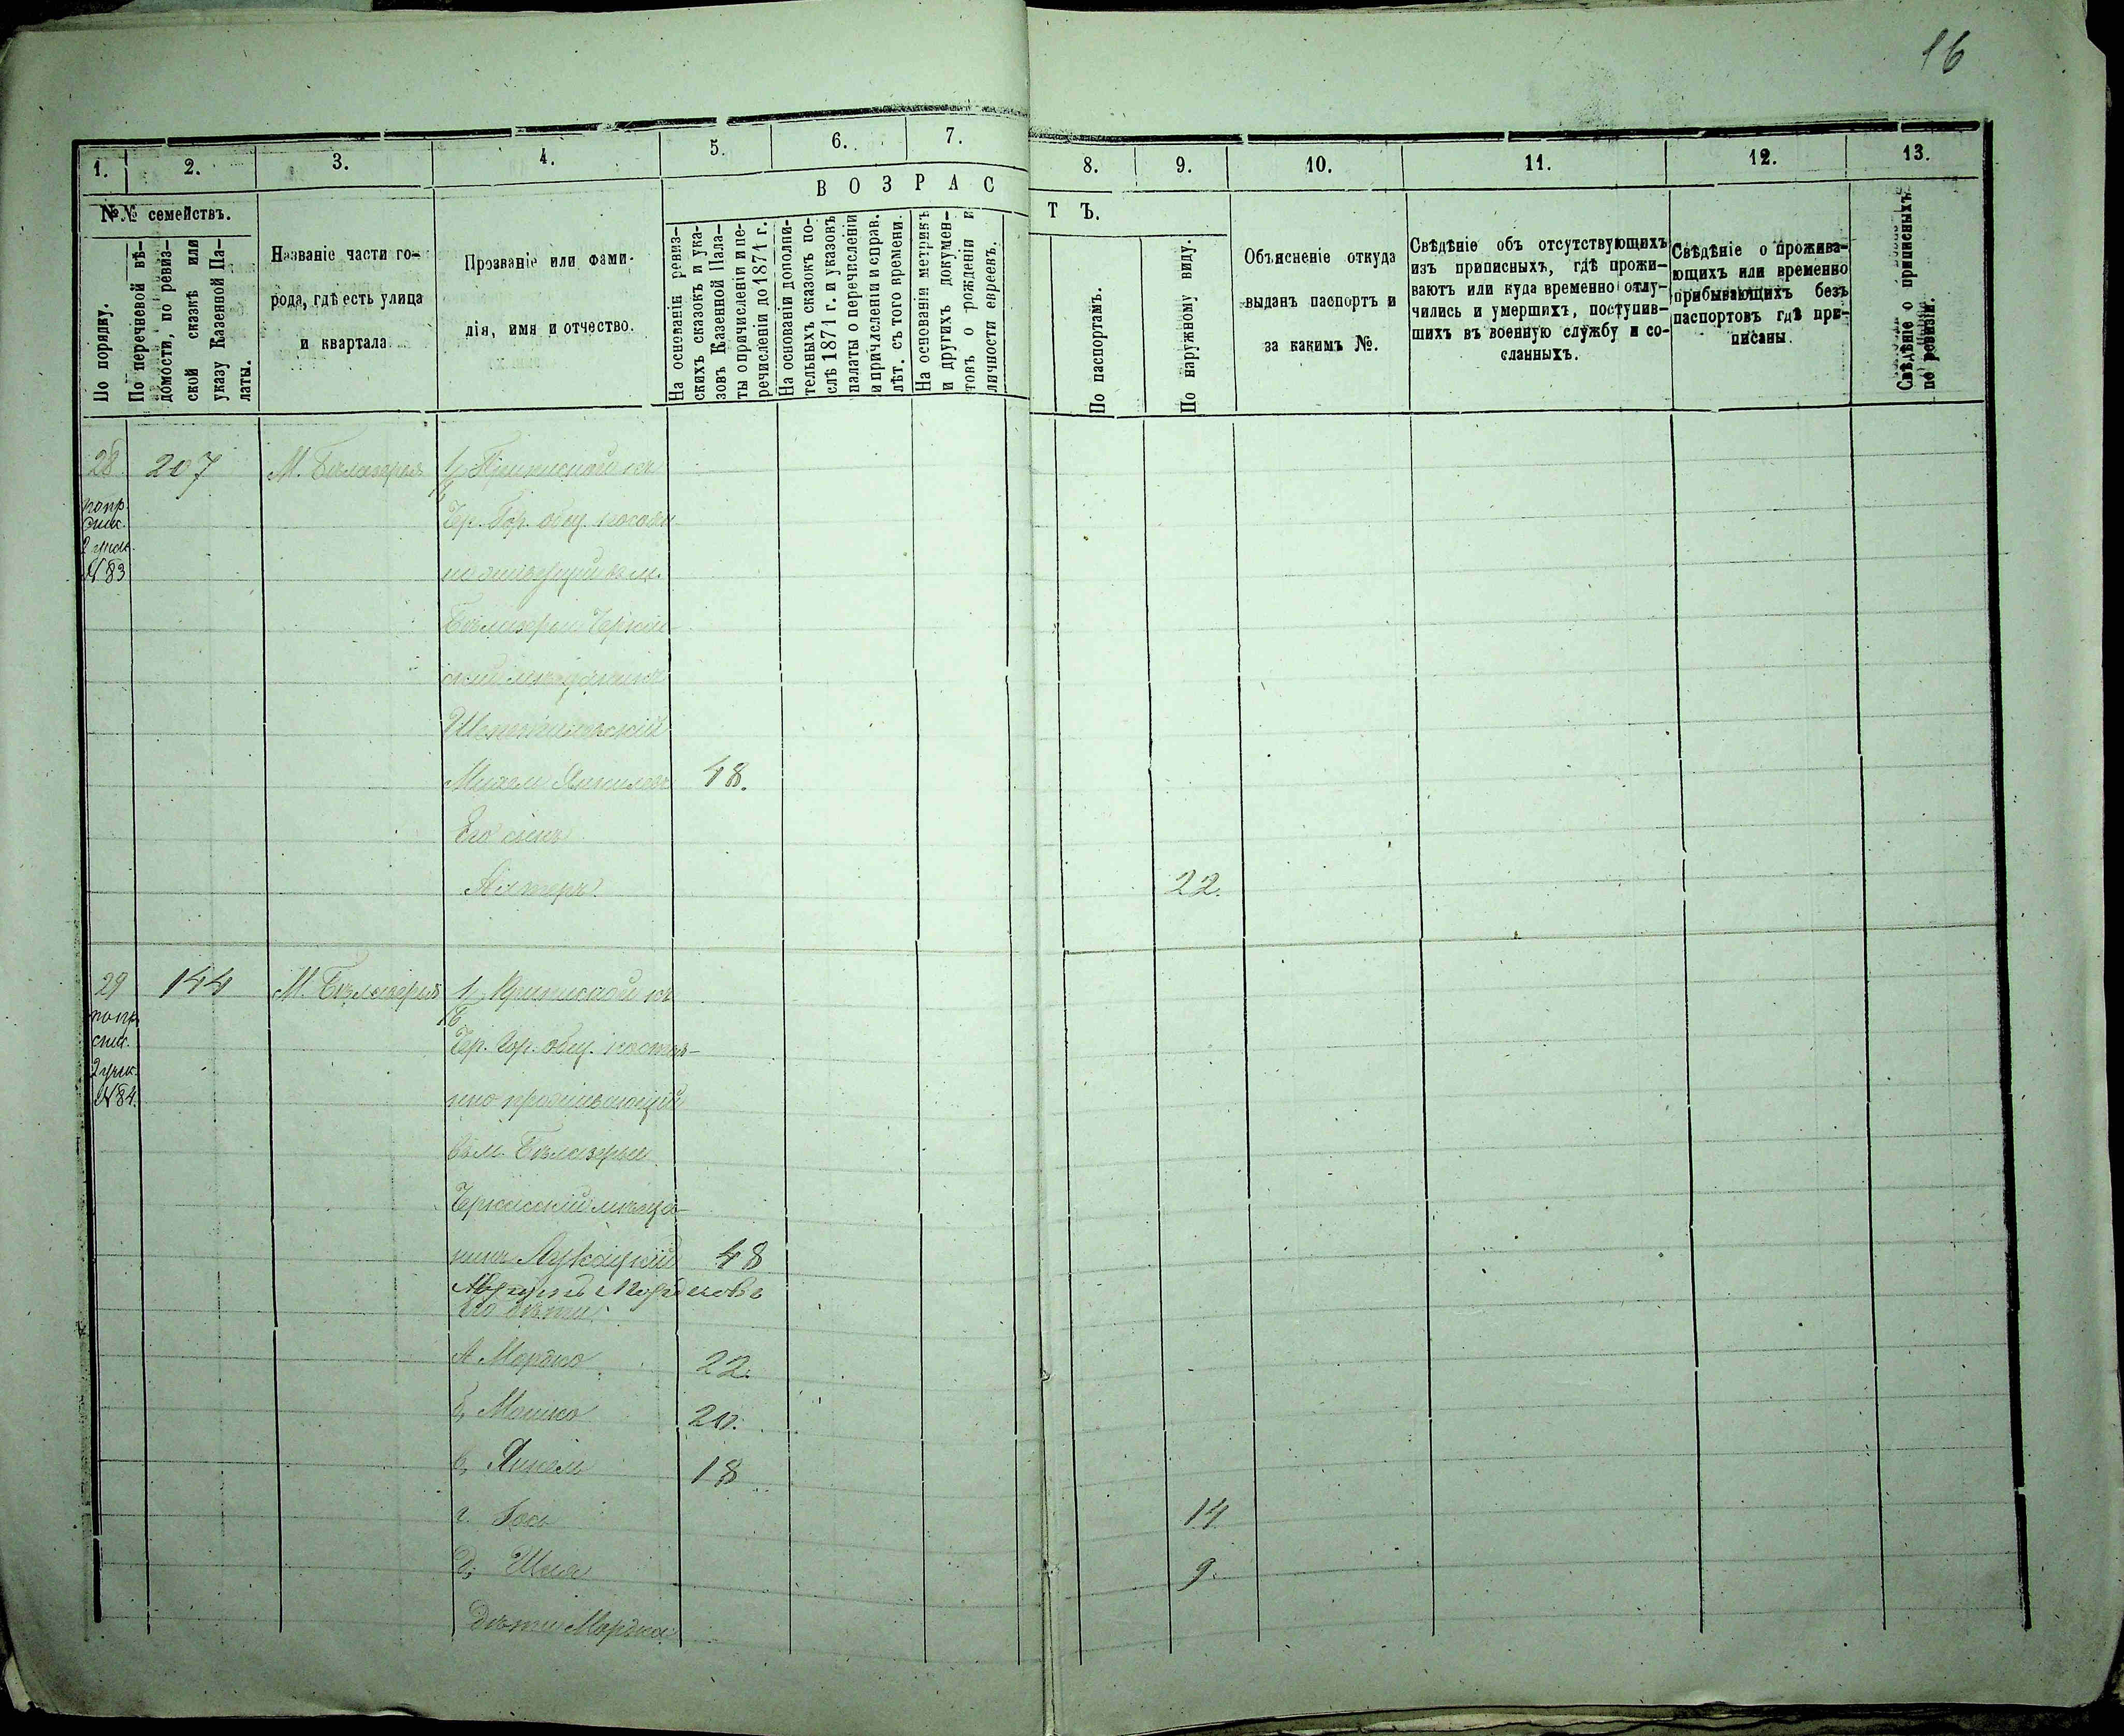 16
1. 2. 3. 4. 5. 6. 7. 8. 9. 10. 11. 12. 13.
№№ семействъ.
По порядку.
По перечневой вѣ-
домости, по ревиз-
ской сказкѣ или
указу Казенной Па-
латы.
Названіе части го-
рода, гдѣ есть улица
и квартала
Прозваніе или фами-
лія, имя и отчество.
ВОЗРАСТЪ.
На основаніи ревиз-
скихъ сказокъ и ука-
зовъ Казенной Пала-
ты о причисленіи и пе-
речисленіи до 1871 г.
На основаніи дополни-
тельныхъ сказокъ по-
слѣ 1871 г. и указовъ
палаты о перечисленіи
и причисленіи и справ.
лѣт. съ того времени.
На основаніи метрикъ
и другихъ докумен-
товъ о рожденіи и
личности евреевъ.
По паспортамъ.
По наружному виду.
Объясненіе откуда
выданъ паспортъ и
за какимъ №.
Свѣдѣніе объ отсутствующихъ
изъ приписныхъ, гдѣ прожи-
ваютъ или куда временно отлу-
чились и умершихъ, поступив-
шихъ въ военную службу и со-
сланныхъ.
Свѣдѣніе о прожива-
ющихъ или временно
прибывающихъ безъ
паспортовъ гдѣ при-
писаны.
Свѣдѣніе о приписныхъ
по ревизіи.
28 207 М. Бѣлозерья 1, Приписной къ
попр.
спис.
2 учас.
№ 83
Чер. Гор. общ.
Бѣлозерьи Черкас-
скій мѣщанинъ
48.
Его сынъ
Алтеръ 22.
29 144 М. Бѣлозерья 1, Приписной къ
попр.
спис.
2 учас.
№ 84.
Чер. Гор. общ. постоя-
нно проживающій
въ м. Бѣлозерьи
Черкасскій мѣща-
нинъ 48
Его дѣти:
А Мордко 22.
Б, Мошко 20.
В, Янкель 18
г. 14
д, 9.
дѣти Мордка